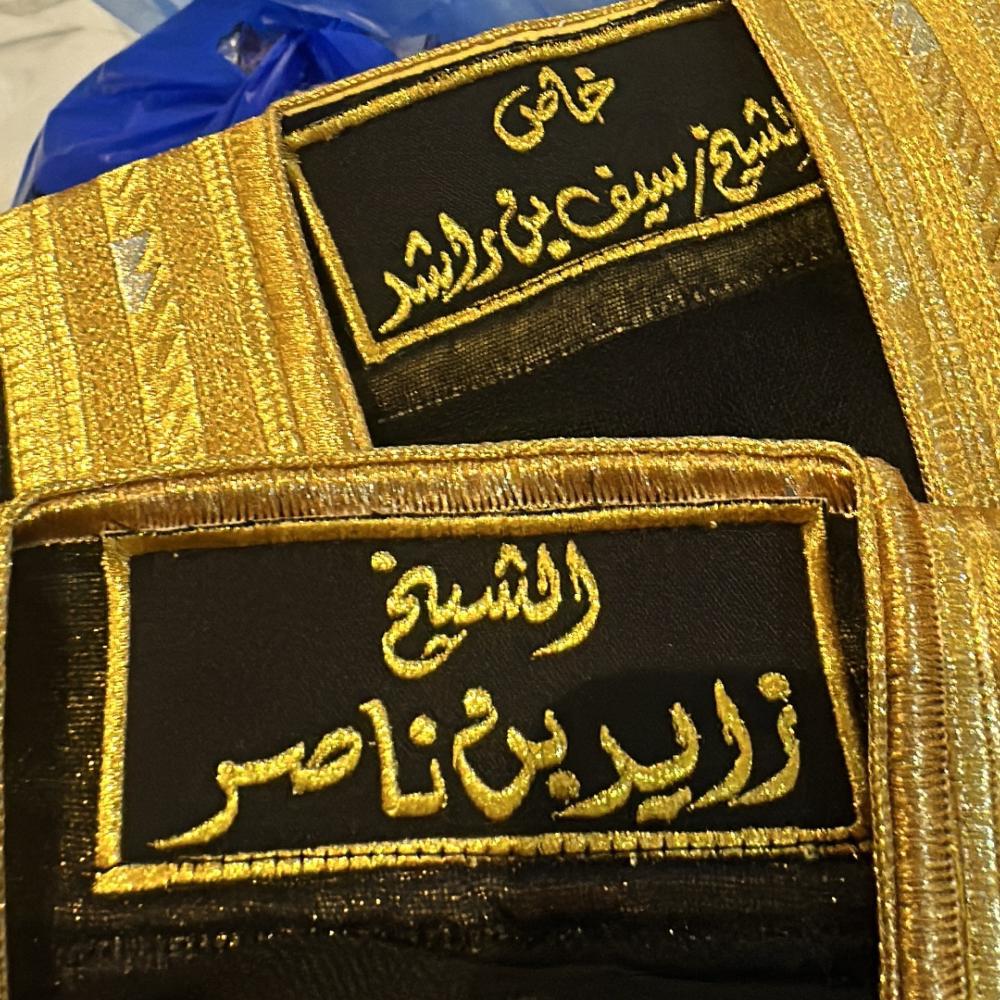 خاص
الشيخ/سيف بن راشد
الشيخ
زايد بن ناصر